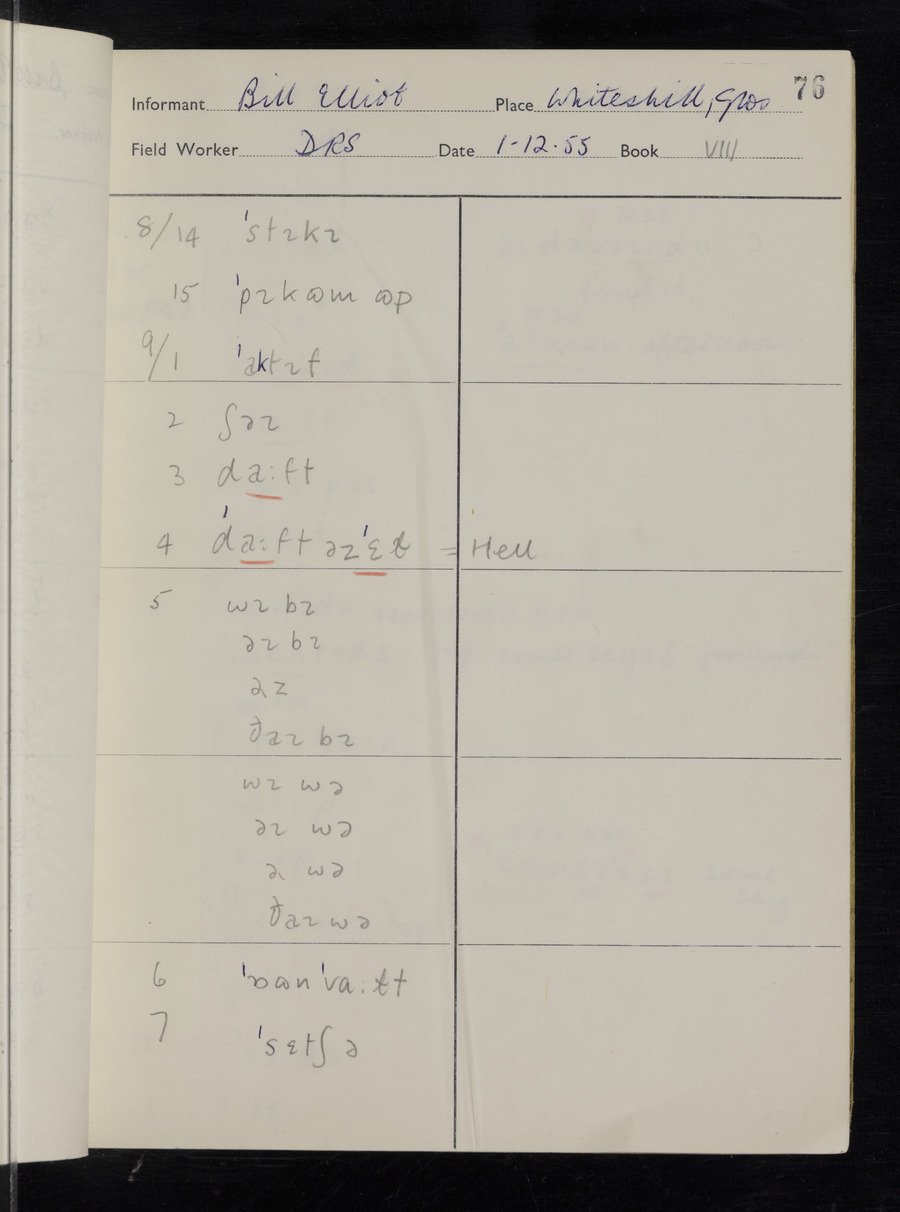 76
Informant Bill Elliot Place Whiteshill, Glos
Field Worker DRS Date 1-12-55 Book VIII
8/14 ˈstɪkɪ
15 ˈpɪkɷm ɷp
9/1 ˈaktɪf
2 ʃəɪ
3 da:ft
4 ˈda:ft əzˈɛɫ = Hell
5 wɪ bɪ
əɪ bɪ
əz
ðaɪ bɪ
wɪ wə
əɪ wə
ə wə
ðaɪ wə
7 ˈsɛtʃ ə